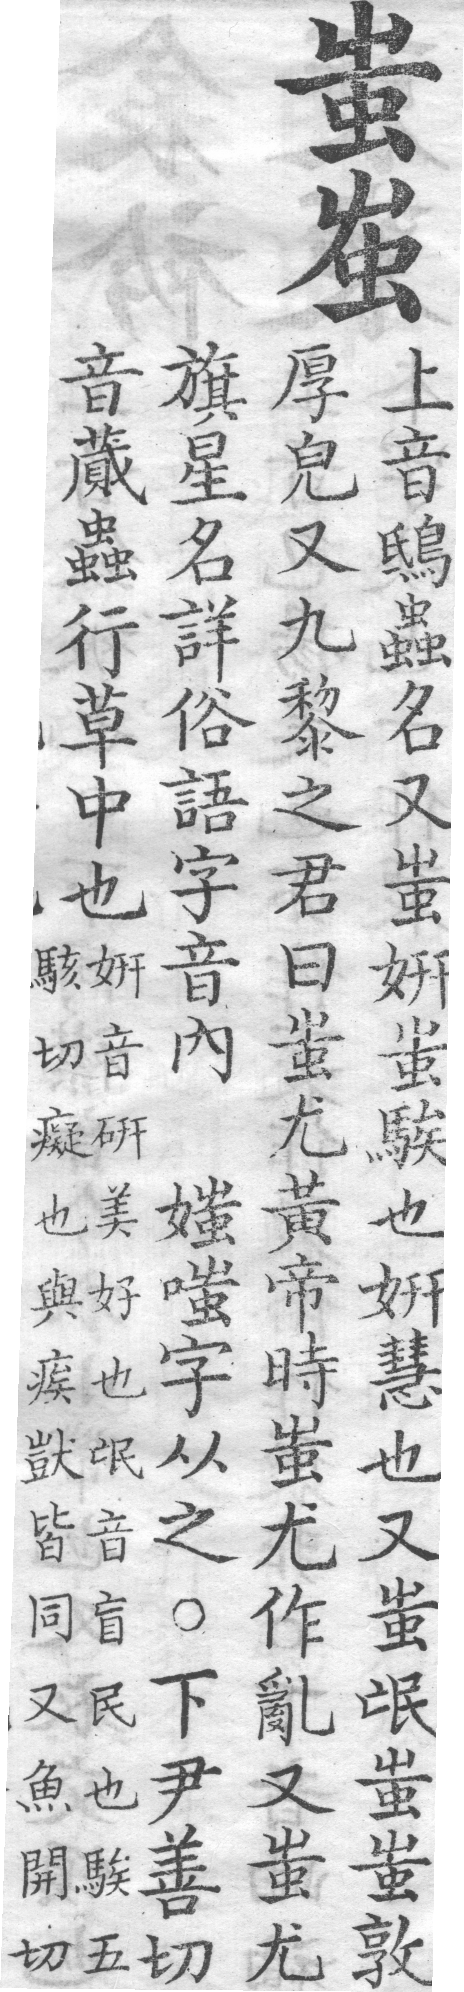 蚩䖤
上音鴟蟲名又蚩姸蚩騃也姸慧也又蚩氓蚩蚩敦
厚皃又九黎之君曰蚩尤黃帝時蚩尤作亂又蚩尤
旗星名詳俗語字音內　媸嗤字从之○下尹善切
音蕆蟲行草中也
姸音硏美好也氓音盲民也騃五
駭切癡也與㾻獃皆同又魚開切